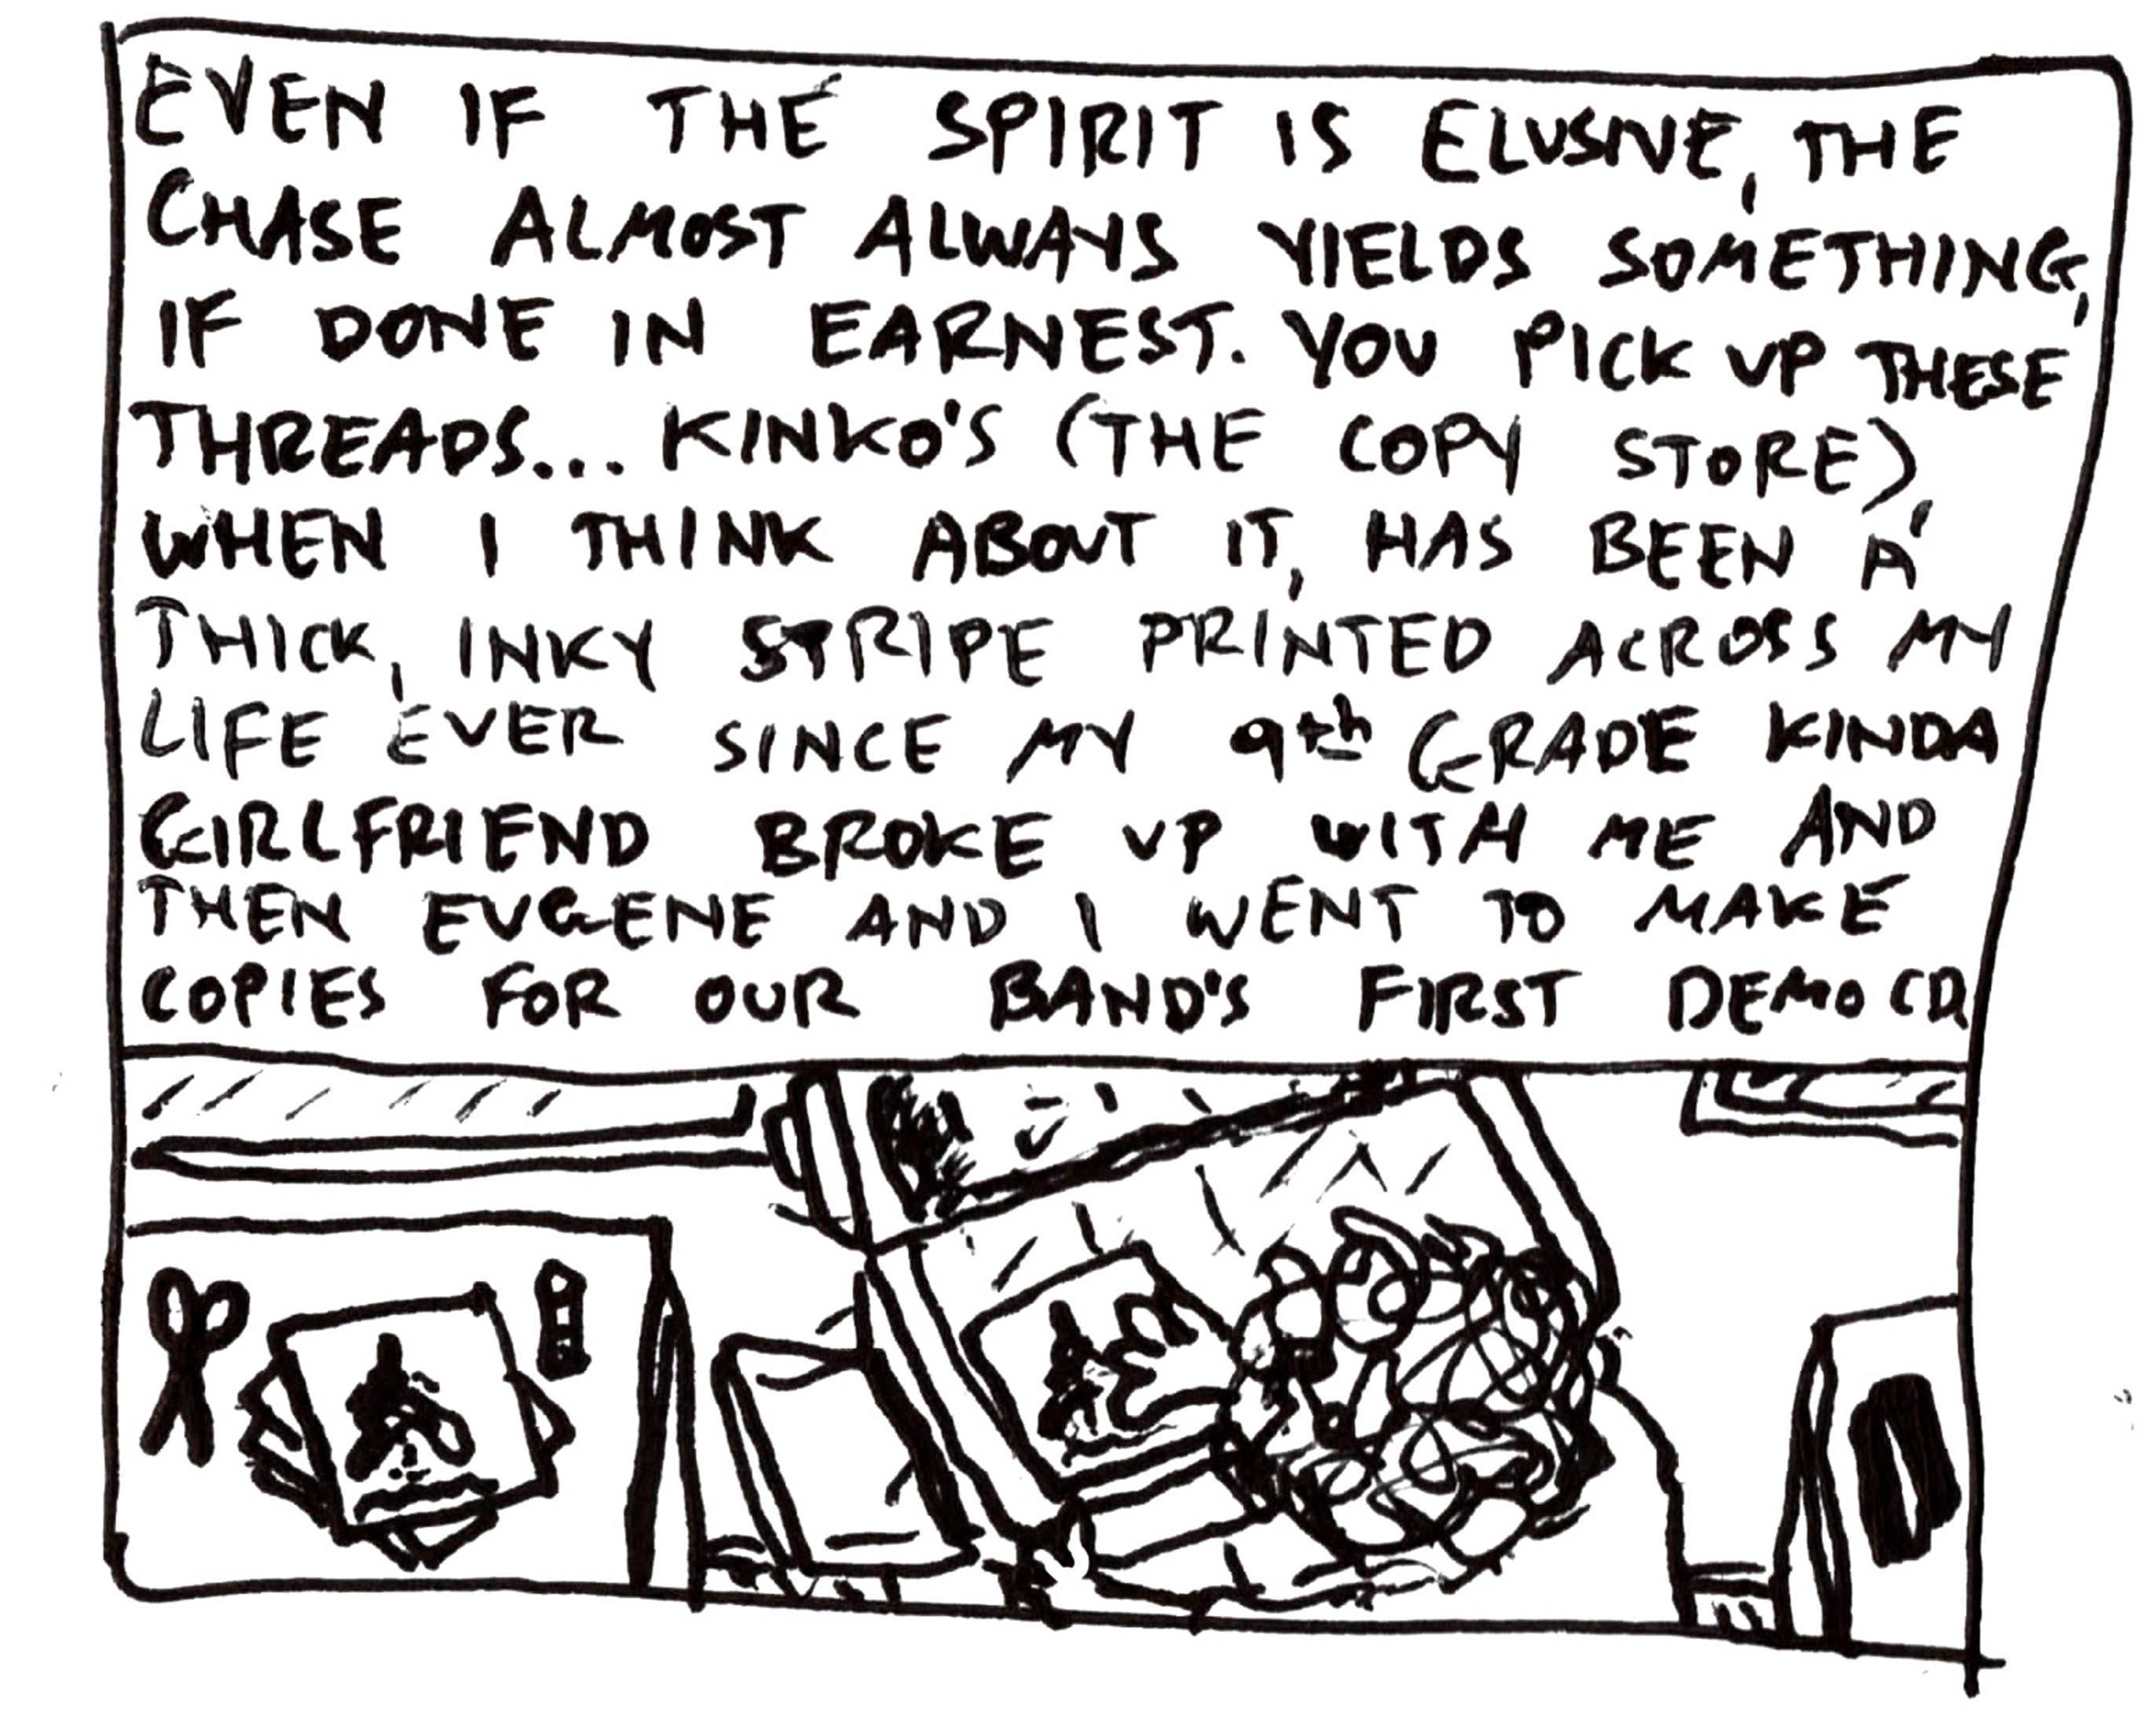 EVEN IF THE SPIRIT IS ELUSIVE, THE
CHASE ALMOST ALWAYS YIELDS SOMETHING,
IF DONE IN EARNEST. YOU PICK UP THESE
THREADS... KINKO'S (THE COPY STORE),
WHEN I THINK ABOUT IT, HAS BEEN A
THICK, INKY STRIPE PRINTED ACROSS MY
LIFE EVER SINCE MY 9th GRADE KINDA
GIRLFRIEND BROKE UP WITH ME AND
THEN EUGENE AND I WENT TO MAKE
COPIES FOR OUR BAND'S FIRST DEMO CD.